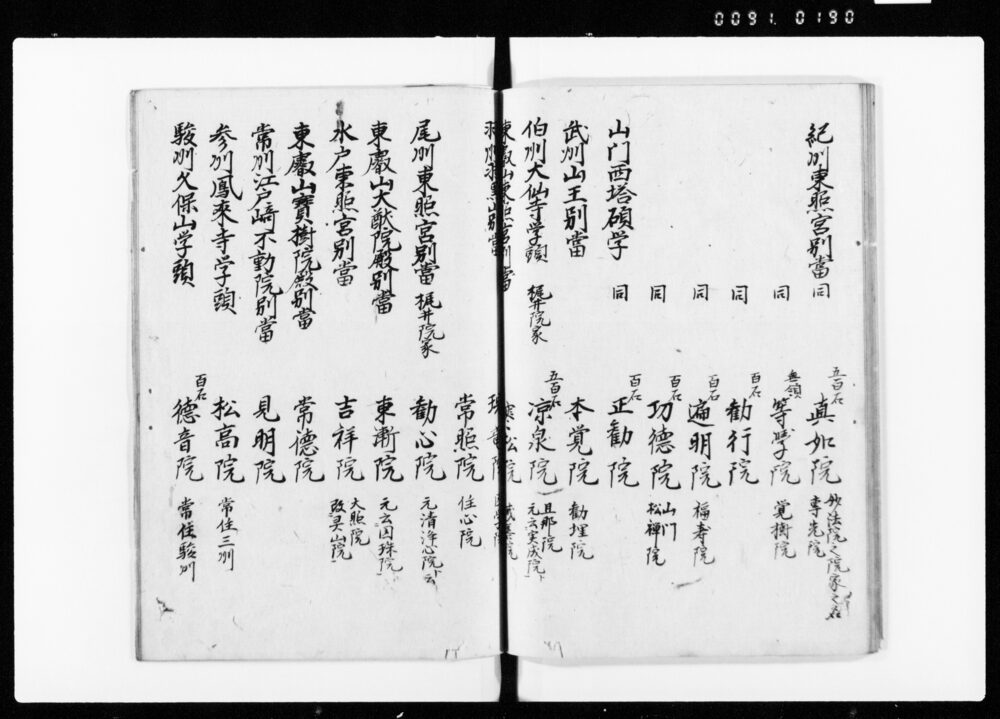 0091.0190
紀州東照宮別當 同 五百石 真如院 妙法院之院家之名 専光院
同 無領 等學院 覚樹院
同 百石 勧行院
同 百石 遍明院 福寿院
同 百石 功徳院 山门 松禅院
山门西塔碩学 同 百石 正勧院
武州山王別當 本覚院 勧理院
伯州大仙寺学頭 梶井院家 五百石 凉泉院 且那院 元云実成院
東叡山東照宮別當 寒松院
羽州羽黒山別當
常照院 住心院
尾州東照宮別當 梶井院家 勧心院 元清浄心院云
東叡山大猷院殿別當 東漸院 元云囙珠院
水戸東照宮別當 吉祥院 大照院 改昊山院
東叡山寳樹院殿別當 常徳院
常州江戸﨑不動院別當 見明院
参州鳳来寺学頭 松高院 常住三州
駿州久保山学頭 百石 徳音院 常住駿州